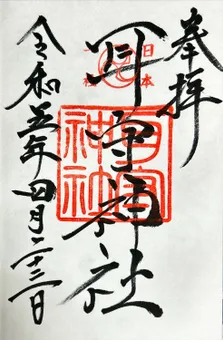 奉拝
日本
耳守神社
耳守
神社
令和五年四月二十三日